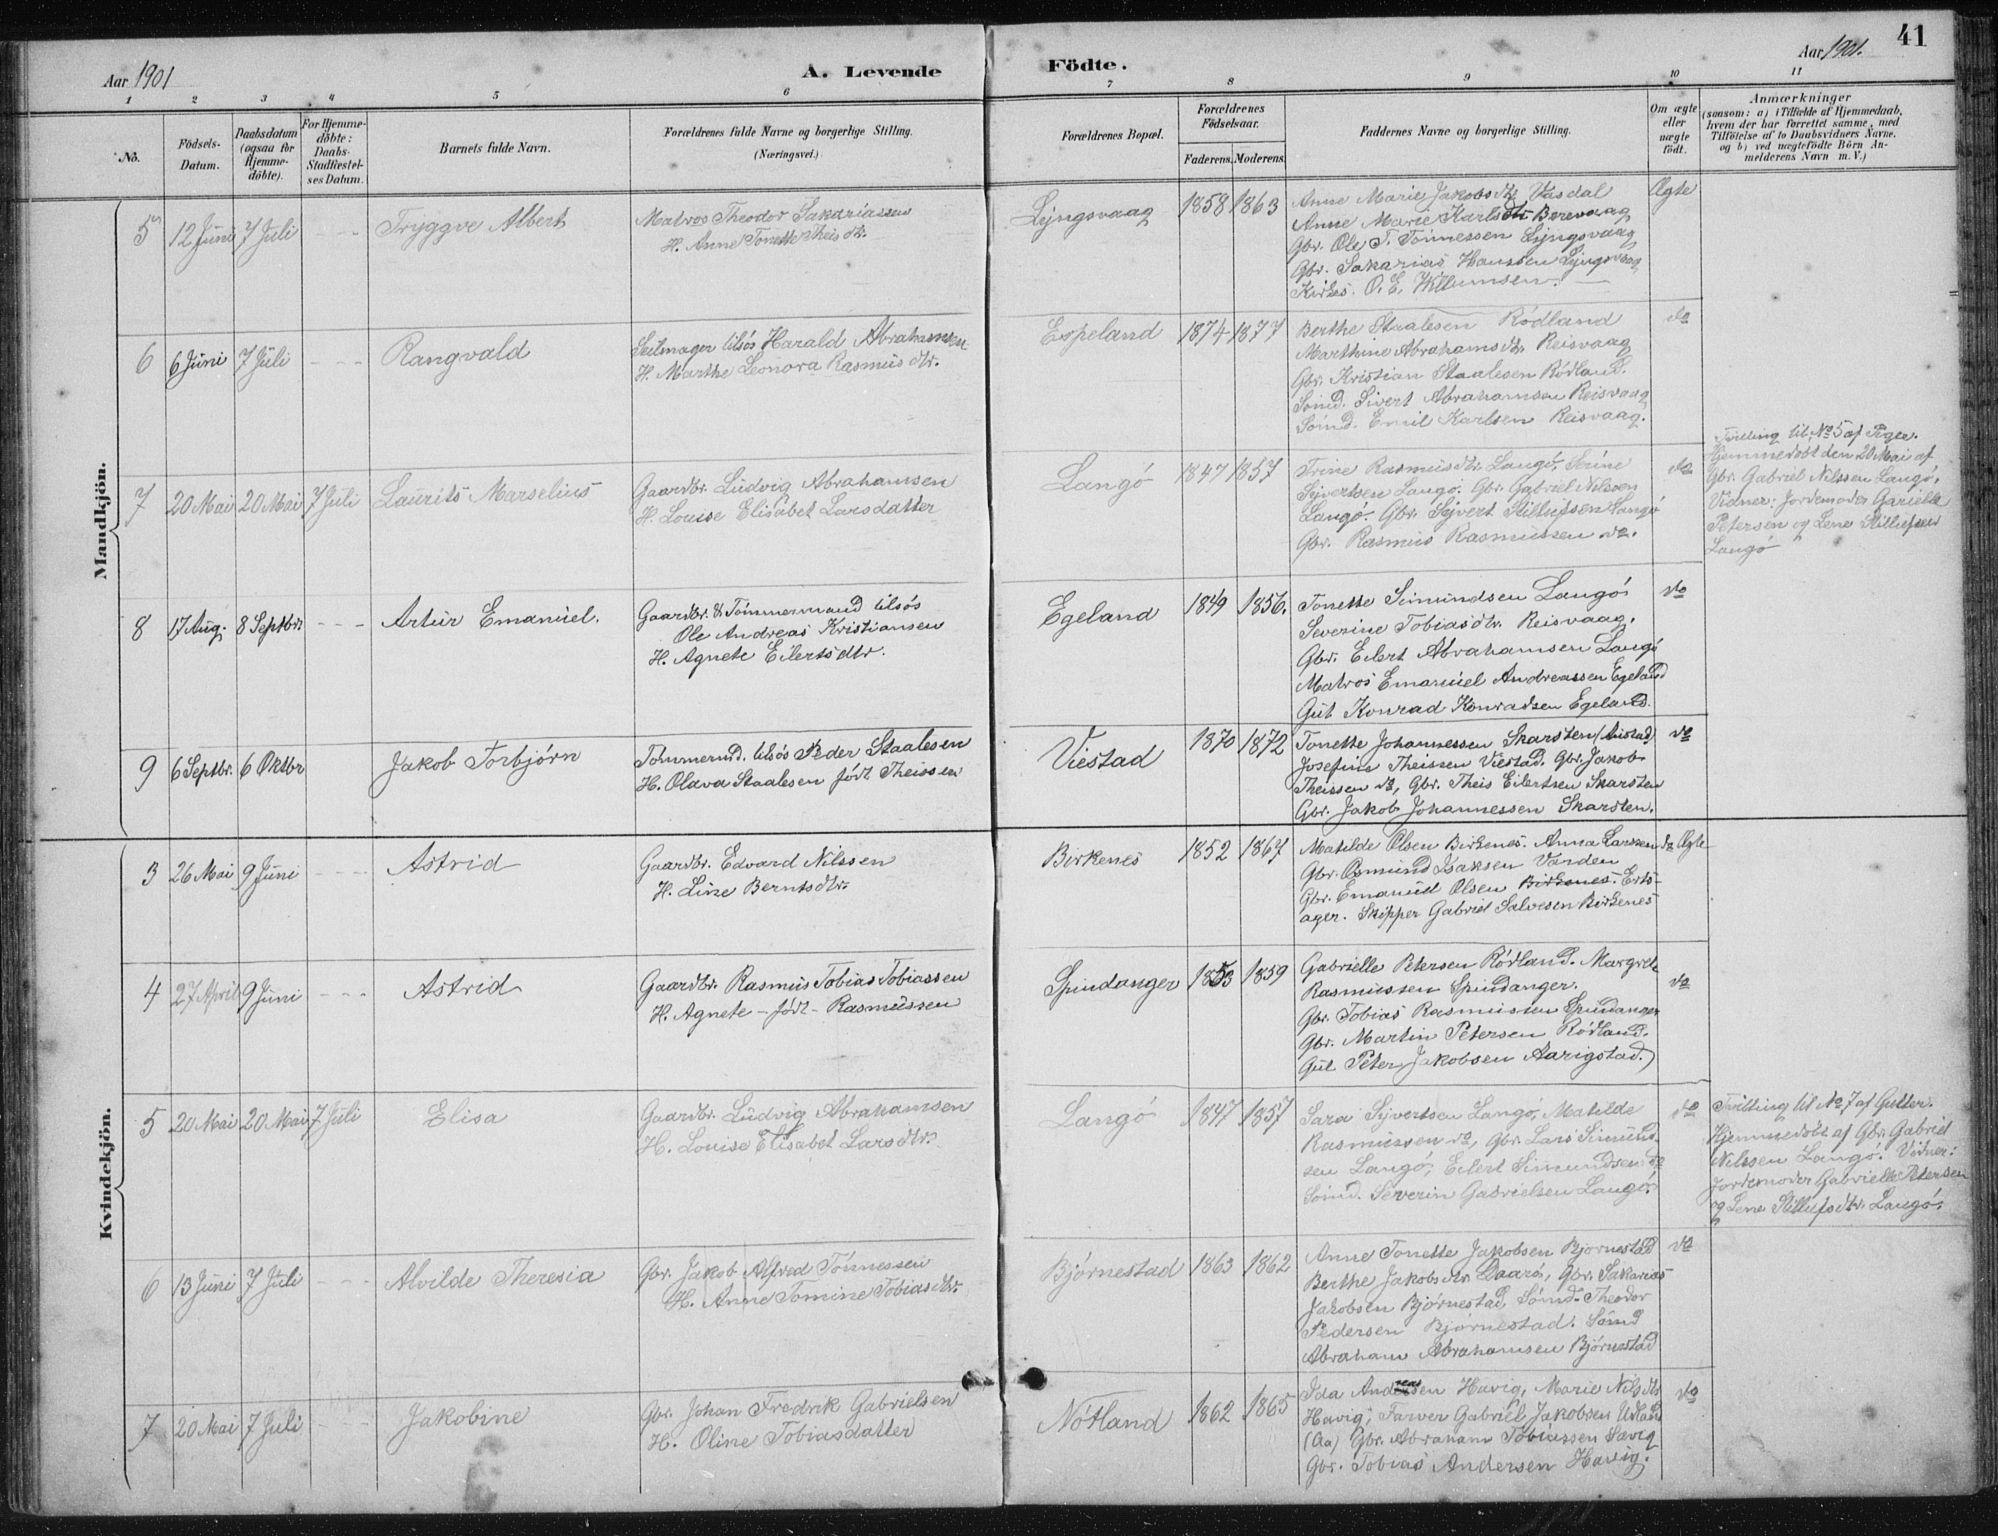 41
Aar 1901
A. Levende Födte.
Aar 1901.
1 2 3 4 5 6 7 8 9 10 11
No.
Födsels-
Datum.
Daabsdatum
(ogsaa for
Hjemme-
döbte).
For Hjemme-
döbte:
Daabs-
Stadfæstel-
ses Datum.
Barnets fulde Navn.
Forældrenes fulde Navne og borgerlige Stilling.
(Næringsvei.)
Forældrenes Bopæl.
Forældrenes
Födselsaar.
Faderens. Moderens.
Faddernes Navne og borgerlige Stilling.
Om ægte
eller
uægte
födt.
Anmærkninger
(saasom: a) i Tilfælde af Hjemmedaab,
hvem der har forrettet samme, med
Tilföielse af to Daabsvidners Navne.
og b) ved uægtefödte Börn An-
melderens Navn m. V.)
Mandkjön.
5 12 Juni 7 Juli - - - Tryggve Albert
Matros Theodor Sakariassen
H. Anne Tonette Theisdtr.
Lyngsvaag 1858 1863
Anne Marie Jakobsdtr Vasdal
Anne Marie Karlsdtr Borevaag
Gbr. Ole T. Tönnessen Lyngsvaag
Gbr. Sakarias Hanssen Lyngsvaag
Kirkes. O. E. Willumsen.
Ægte
6 6 Juni 7 Juli - - - Rangvald
Seilmager tilsös Harald Abrahamsen
H. Marthe Leonora Rasmusdtr.
Espeland 1874 1877
Berthe Staalesen Rödland
Marthine Abrahamsdtr. Reisvaag
Gbr. Kristian Staalesen Rödland.
Sömd. Sivert Abrahamsen Reisvaag
Sömd. Emil Karlsen Reisvaag.
do
7 20 Mai 20 Mai 7 Juli Laurits Marselius
Gaardbr. Ludvig Abrahamsen
H. Louise Elisabet Larsdatter
Langö 1847 1857
Trine Rasmusdtr. Langö, Serine
Syvertsen Langö. Gbr. Gabriel Nilssen
Langö. Gbr. Syvert Stillufsen Langö
Gbr. Rasmus Rasmussen do.
do
Tvilling til No 5 af Piger.
Hjemmedöbt den 20 Mai af
Gbr. Gabriel Nilssen Langö,
Vidner: Jordemoder Garielle
Petersen og Lene Stillufsen
Langö
8 17 Aug. 8 Septbr. - - - Artur Emanuel.
Gaardbr. & Tömmermand tilsös
Ole Andreas Kristiansen
H. Agnete Eilertsdtr.
Egeland 1849 1856.
Tonette Simundsen Langö
Severine Tobiasdtr. Reisvaag.
Gbr. Eilert Abrahamsen Langö
Matros Emanuel Andreassen Egeland
Gut Konrad Konradsen Egeland.
do
9 6 Septbr. 6 Oktbr Jakob Torbjørn
Tömmermd. tilsös Peder Staalesen
H. Olava Staalesen født Theissen
Viestad 1870 1872
Tonette Johannessen Skarsten
Josefine Theissen Viestad. Gbr. Jakob
Theissen do, Gbr. Theis Eilertsen Skarsten
Gbr. Jakob Johannessen Skarsten.
do
Kvindekjön.
3 26 Mai 9 Juni - - - Astrid
Gaardbr. Edvard Nilssen
H. Line Berntsdtr.
Birkenes 1852 1867
Matilde Olsen Birkenes. Anna Larssen do
Gbr. Osmund Isaksen Varden
Gbr. Emanuel Olsen Birkenes. Erts-
ager. Skipper Gabriel Salvesen Birkenes
Ægte
4 27 April 9 Juni - - - Astrid
Gaardbr. Rasmus Tobias Tobiassen
H. Agnete - født - Rasmussen
Spindanger 1853 1859
Gabrielle Petersen Rödland. Margrete
Rasmussen Spindanger.
Gbr. Tobias Rasmussen Spindanger
Gbr. Martin Petersen Rödland.
Gut Peter Jakobsen Aarigstad.)
do
5 20 Mai 20 Mai 7 Juli Elisa
Gaardbr. Ludvig Abrahamsen
H. Louise Elisabet Larsdtr.
Langö 1847 1857
Sara Syvertsen Langö, Matilde
Rasmussen do, Gbr. Lars Simund-
sen Langö, Eilert Simundsen do
Sömd. Severin Gabrielsen Langö.
do
Tvilling til No 7 af Gutter.
Hjemmedöbt af Gbr. Gabriel
Nilssen Langö. Vidner:
Jordemoder Gabrielle Petersen
og Lene Stillufsdtr. Langö.
6 13 Juni 7 Juli - - - Alvilde Theresia
Gbr. Jakob Alfred Tönnessen
H. Anne Tomine Tobiasdtr.
Bjørnestad 1863 1862
Anne Tonette Jakobsen Bjørnestad
Berthe Jakobsdtr. Gbr. Sakarias
Jakobsen Bjørnestad, Sömd. Theodor
Pedersen Bjørnestad. Sömd
Abraham Abrahamsen Bjørnestad
do
7 20 Mai 7 Juli - - - Jakobine
Gbr. Johan Fredrik Gabrielsen
H. Oline Tobiasdatter
Nötland 1862 1865
Ida Andreasen Havig, Marie Nilsdtr
Havig, Farver Gabriel Jakobsen Udland
(Aa) Gbr. Abraham Tobiassen Sævig
Gbr. Tobias Andersen Havig.
do